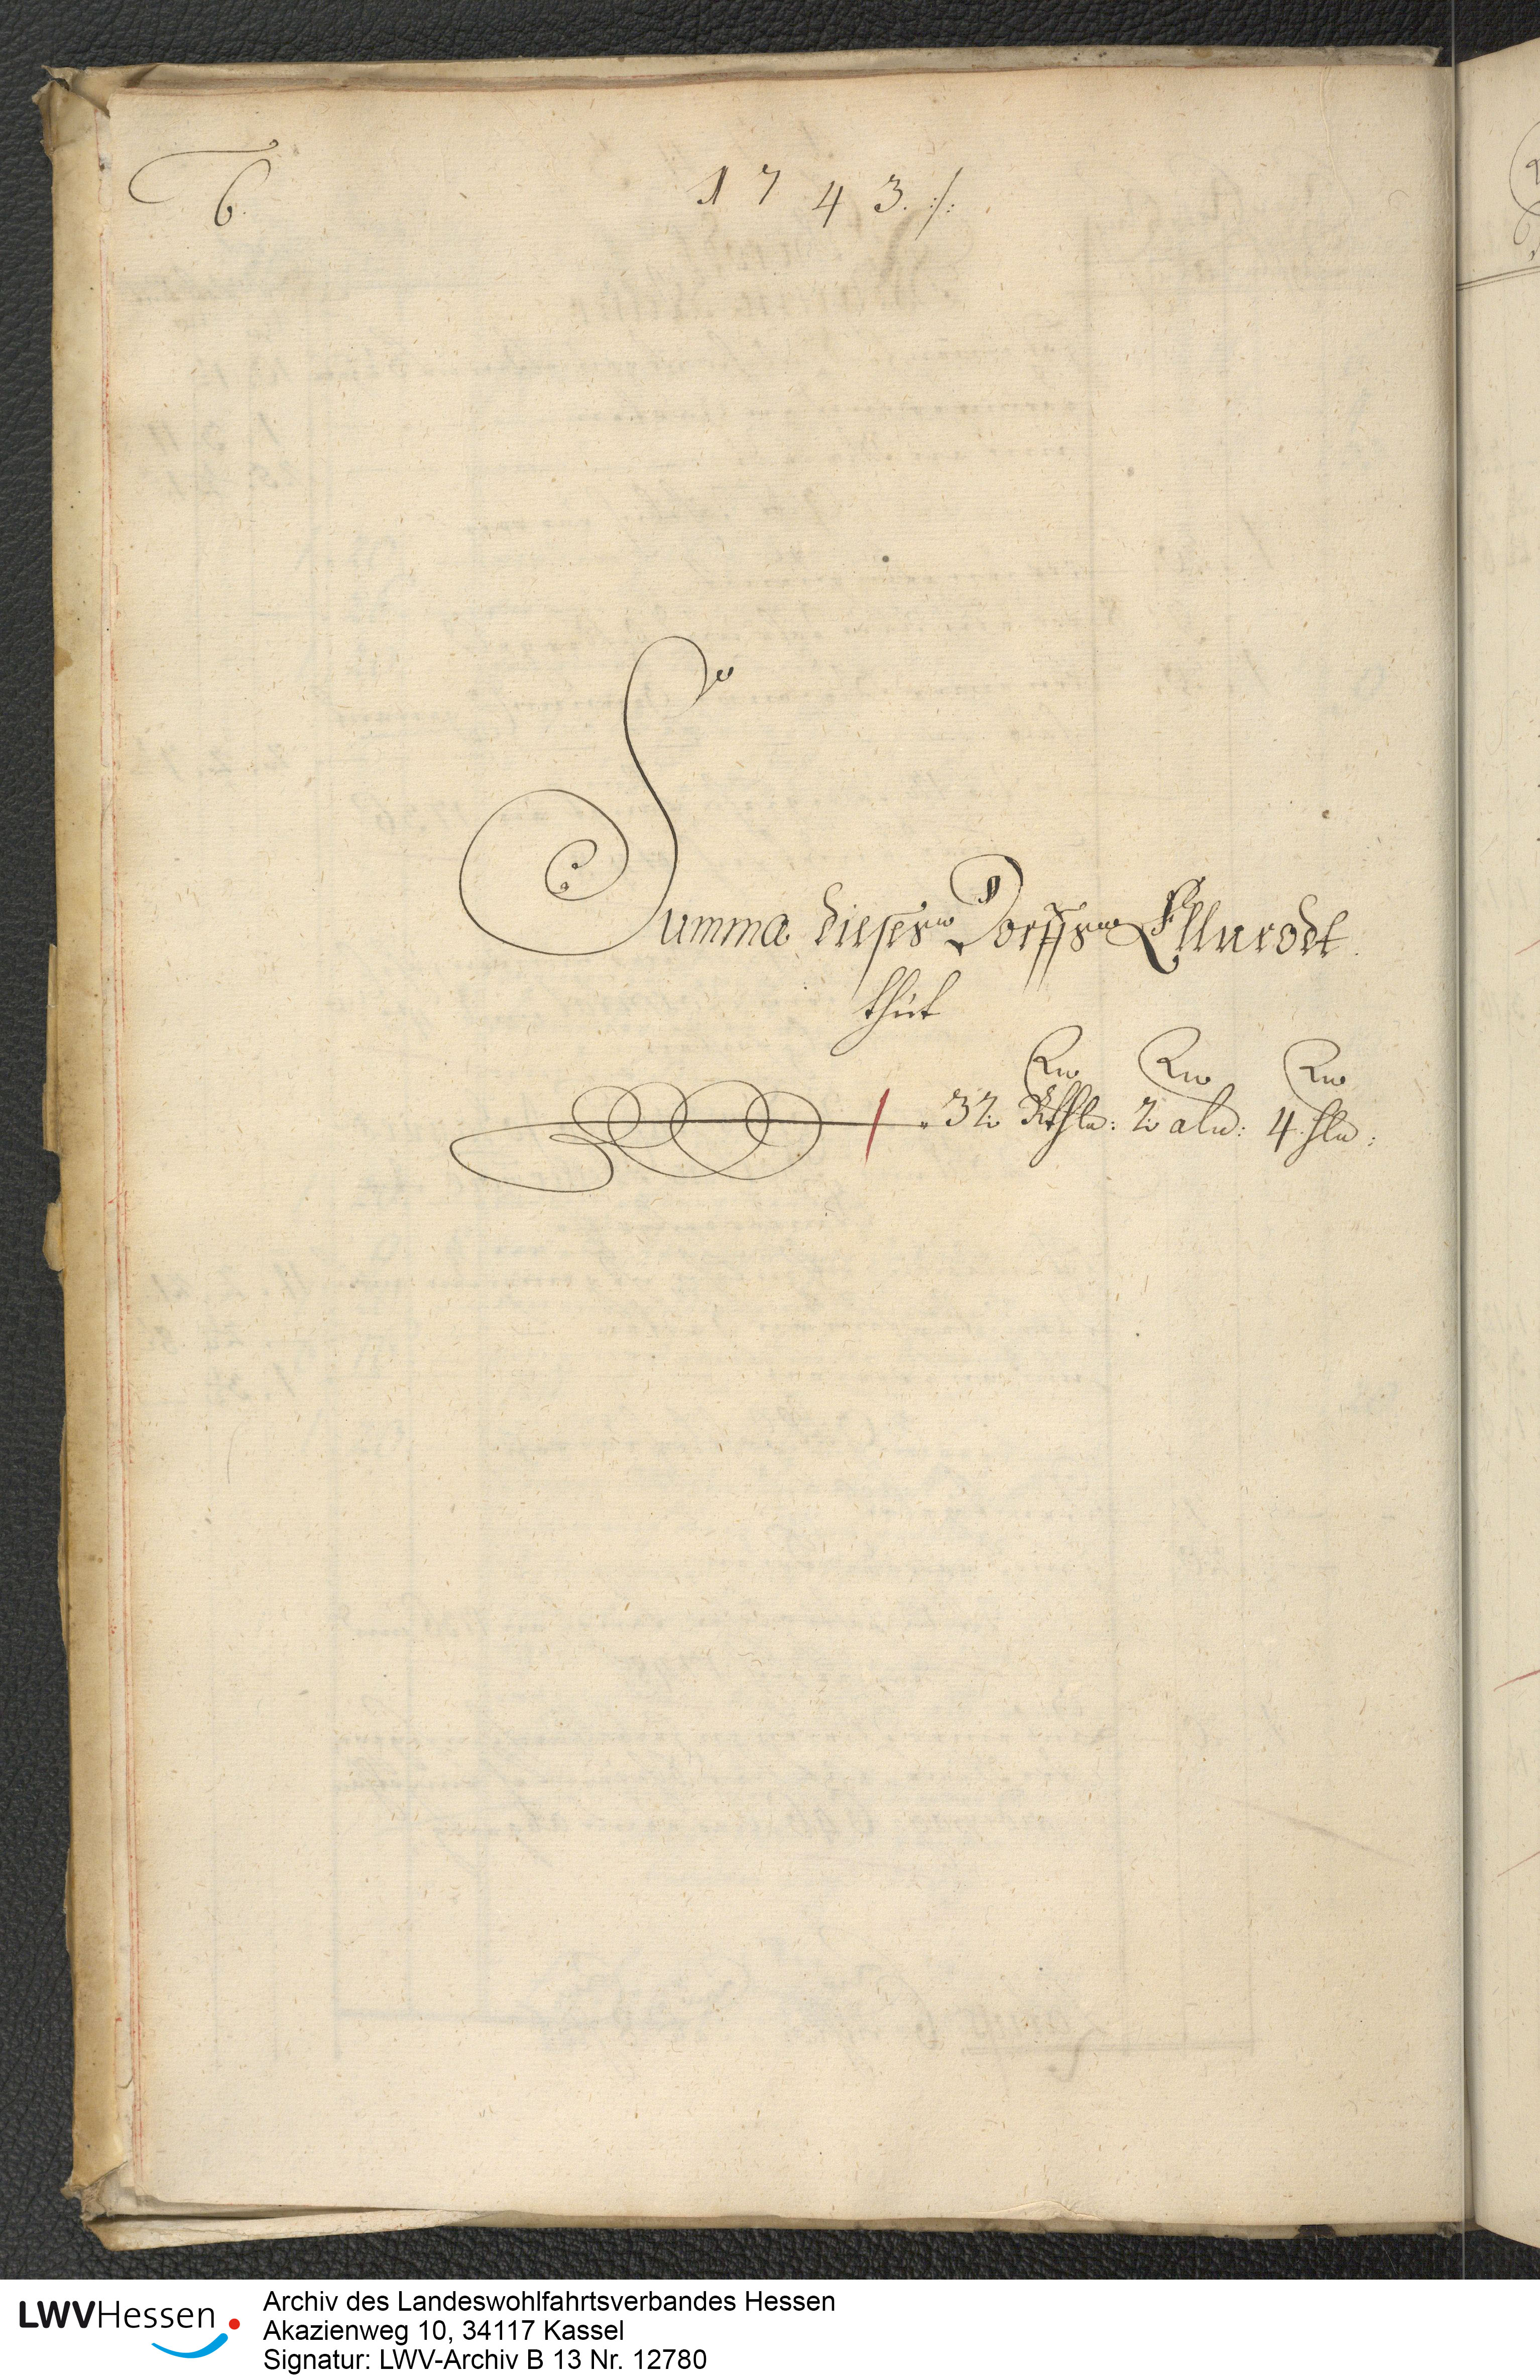 6.
1743. ./.
Summa dieses Dorffs Ellnrodt
thut
32 Rthlr: 2 alb: 4 hlr:
LWVHessen
Archiv des Landeswohlfahrtsverbandes Hessen
Akazienweg 10, 34117 Kassel
Signatur: LWV-Archiv B 13 Nr. 12780